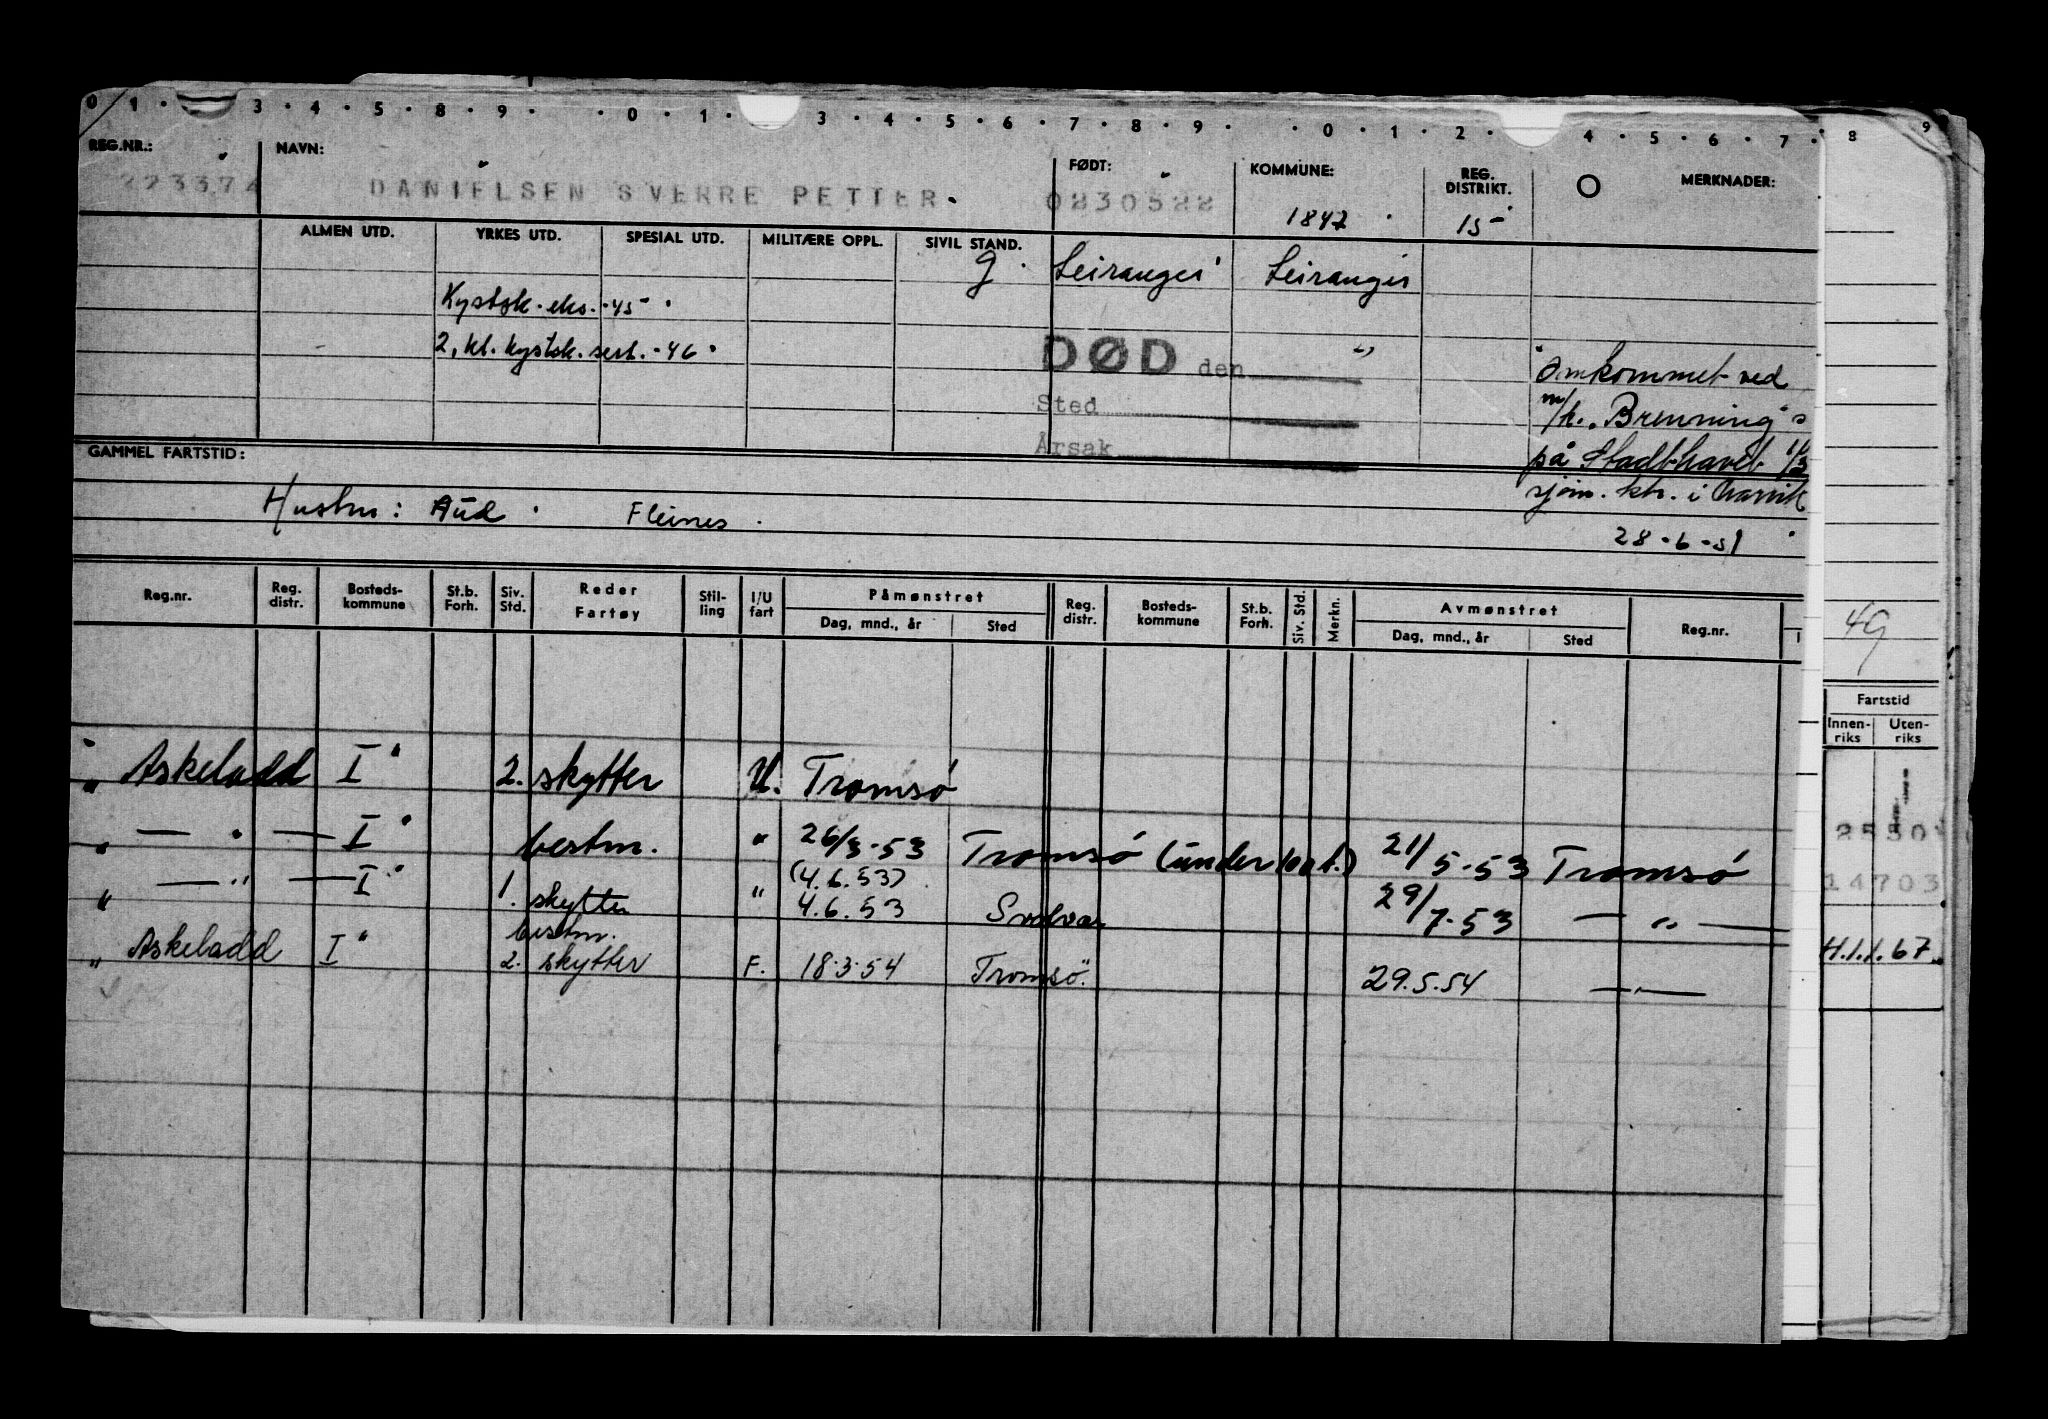 0 1 · 3 · 4 · 5 · 8 · 9 · · 0 · 1 · 3 · 4 · 5 · 6 · 7 · 8 · 9 · · 0 · 1 · 2 · 4 · 5 · 6 · 7 · 8 9
REG.NR.: NAVN: FØDT: KOMMUNE: REG. DISTRIKT. MERKNADER:
223374 DANIELSEN SVERRE PETTER 0230522 1847 15
ALMEN UTD. YRKES UTD. SPESIAL UTD. MILITÆRE OPPL. SIVIL STAND.
g. Leiranger Leiranger
Kystsk. eks. -45
2, kl. kystsk. sert. -46
DØD den "
Omkommet ved
Sted
m/k. "Brenning" s
Årsak
på Stadthavet 1/3
GAMMEL FARTSTID:
sjøm. ktr. i Narvik
Hustru: Aud Fleines
28-6-51
Reg.nr. Reg. distr. Bosteds-kommune St.b. Forh. Siv. Std. Reder Fartøy Stil-ling I/U fart Påmønstret Dag, mnd., år Sted Reg. distr. Bosteds-kommune St.b. Forh. Siv. Std. Merkn. Avmønstret Dag, mnd., år Sted Reg.nr.
49
Fartstid
Innen-riks Uten-riks
" Askeladd I" 2. skytter U. Tromsø
" — " — I" bestm. " 26/3-53 Tromsø (under 100 t.) 21/5-53 Tromsø
2550
(4.6.53)
" — " — I" 1. skytter " 4.6.53 Svolvær 29/7-53 — " —
14703
bestm.
" Askeladd I" 2. skytter F. 18.3.54 Tromsø 29.5.54 — " —
H.1.1.67